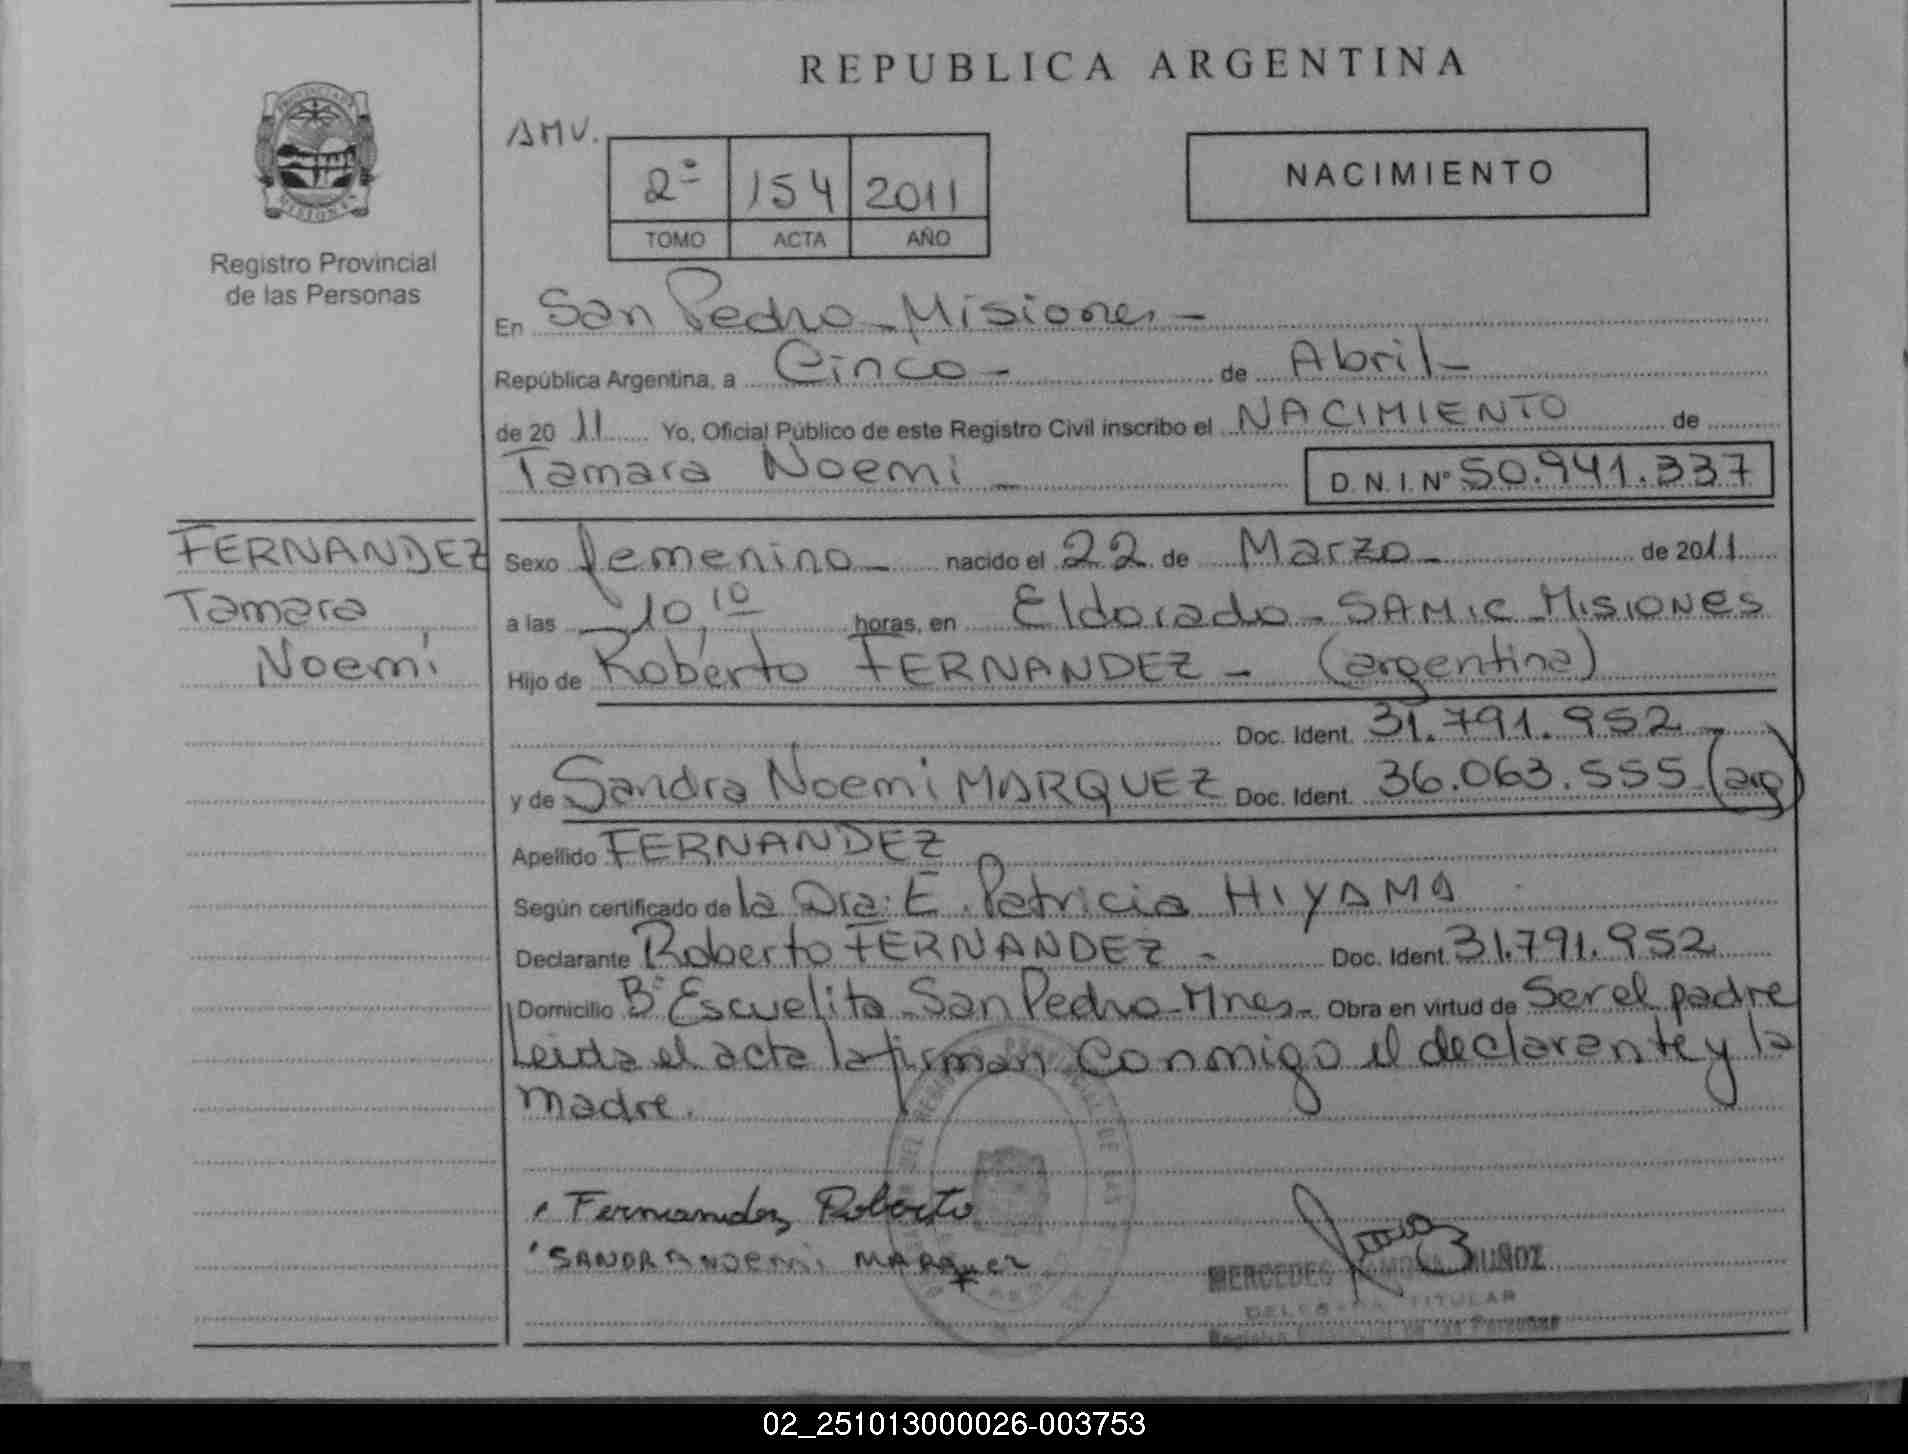 REPUBLICA ARGENTINA
PROVINCIA DE
MISIONES
Registro Provincial
de las Personas
AMV.
2º 154 2011
TOMO ACTA AÑO
NACIMIENTO
En San Pedro - Misiones -
República Argentina, a Cinco - de Abril -
de 20 11 Yo, Oficial Público de este Registro Civil inscribo el NACIMIENTO de
Tamara Noemi - D. N. I. Nº 50.941.337
FERNANDEZ
Tamara
Noemí
Sexo femenino - nacido el 22 de Marzo - de 2011
a las 10,10 horas, en Eldorado - SAMIC - MISIONES
Hijo de Roberto FERNANDEZ - (argentina)
Doc. Ident. 31.791.952
y de Sandra Noemi MARQUEZ Doc. Ident. 36.063.555 (arg)
Apellido FERNANDEZ
Según certificado de la Dra: E. Patricia HIYAMA
Declarante Roberto FERNANDEZ - Doc. Ident. 31.791.952
Domicilio Bº Escuelita - San Pedro - Mnes - Obra en virtud de Ser el padre
Leida el acta la firman conmigo el declarante y la
madre.
Fernandez Roberto
SANDRA NOEMI MARQUEZ
MERCEDES RAMONA MUÑOZ
DELEGADA TITULAR
Registro Provincial de las Personas
02_251013000026-003753